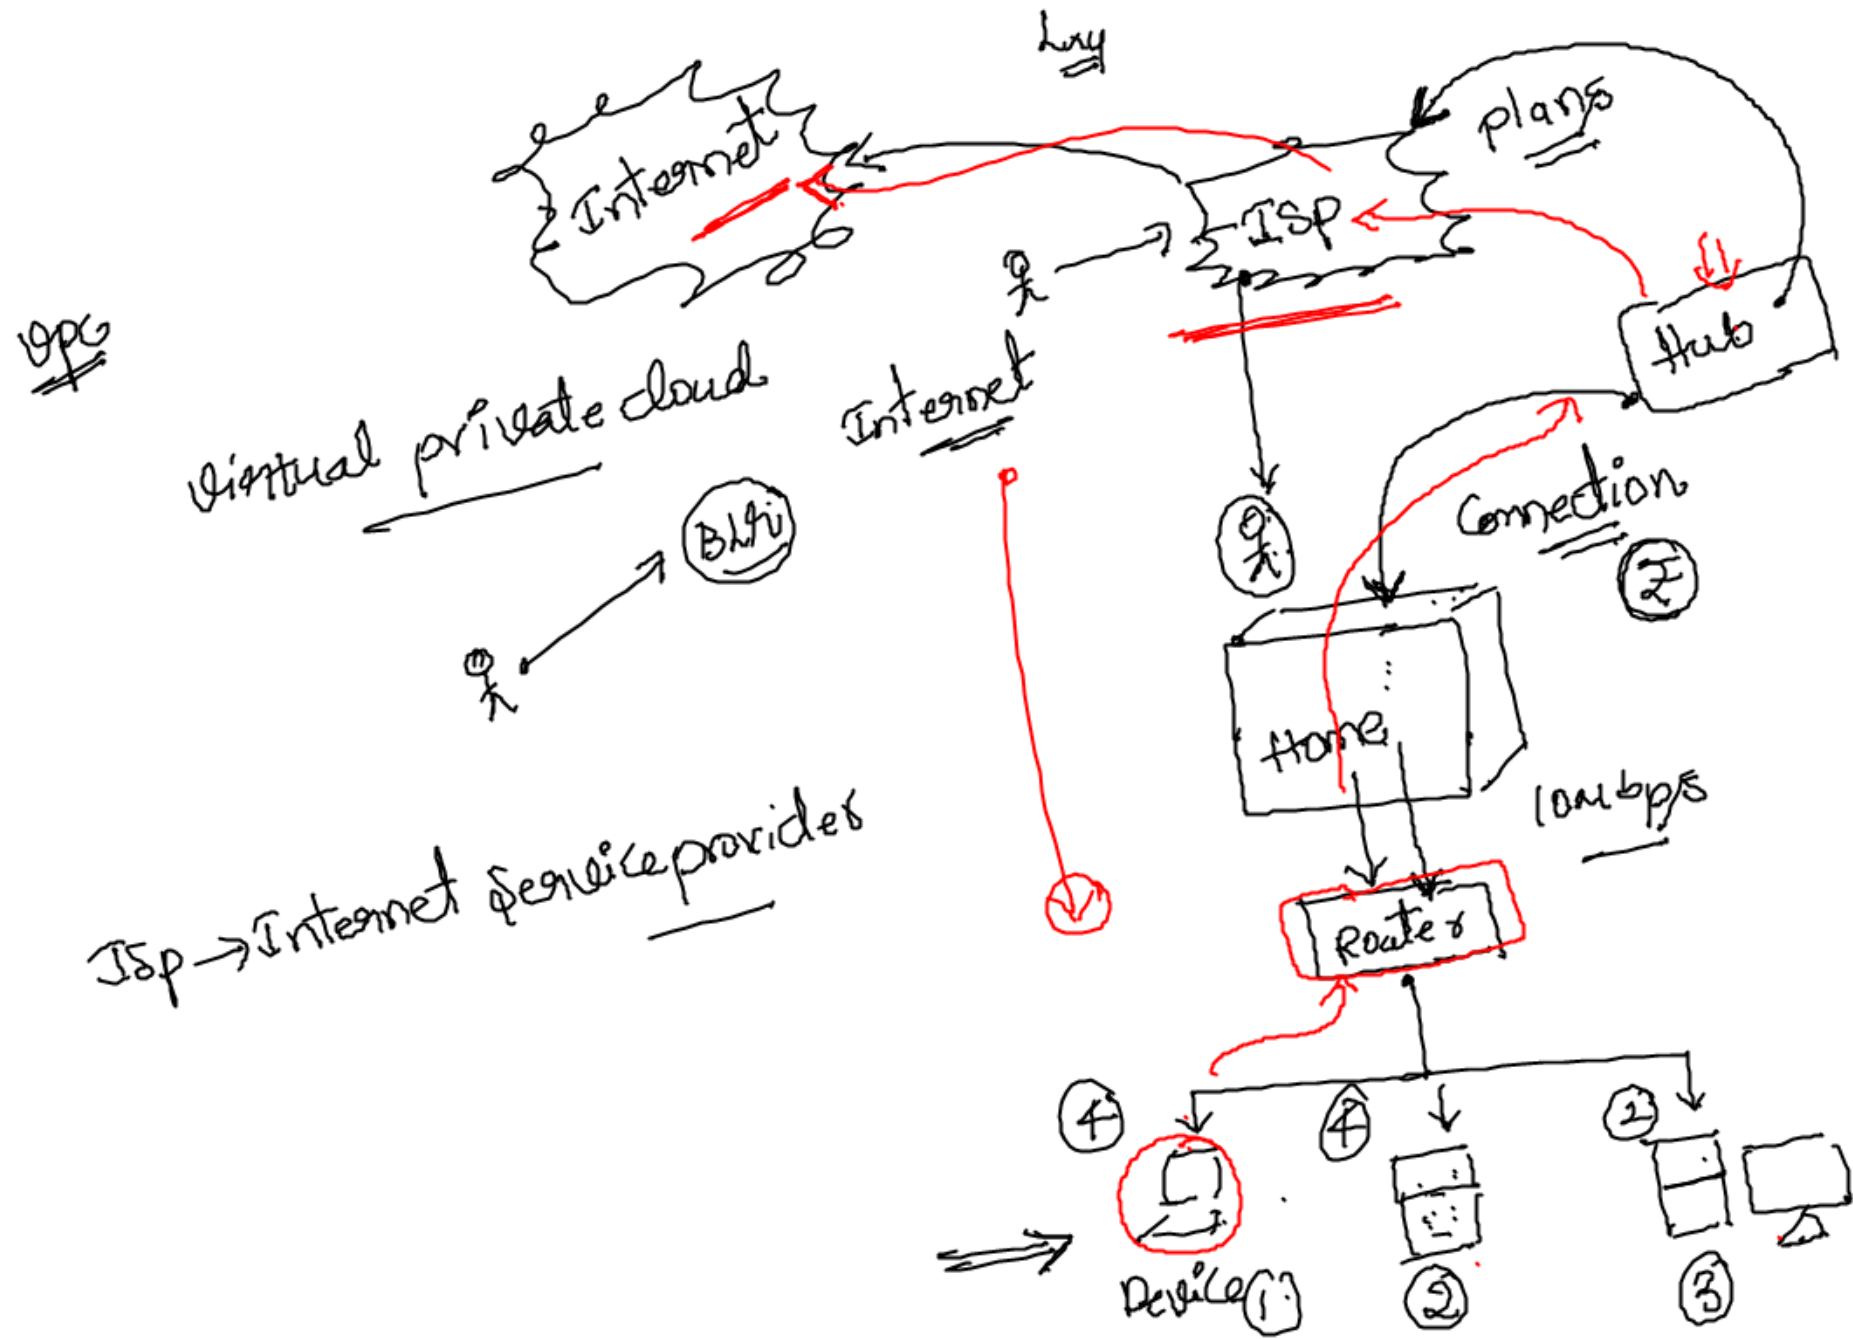 plans
Internet
ISP
Hub
VPC
Virtual private cloud
Internet
Connection
Home
10Mbps
ISP → Internet Service provider
Router
4
4
2
Device 1
2
3